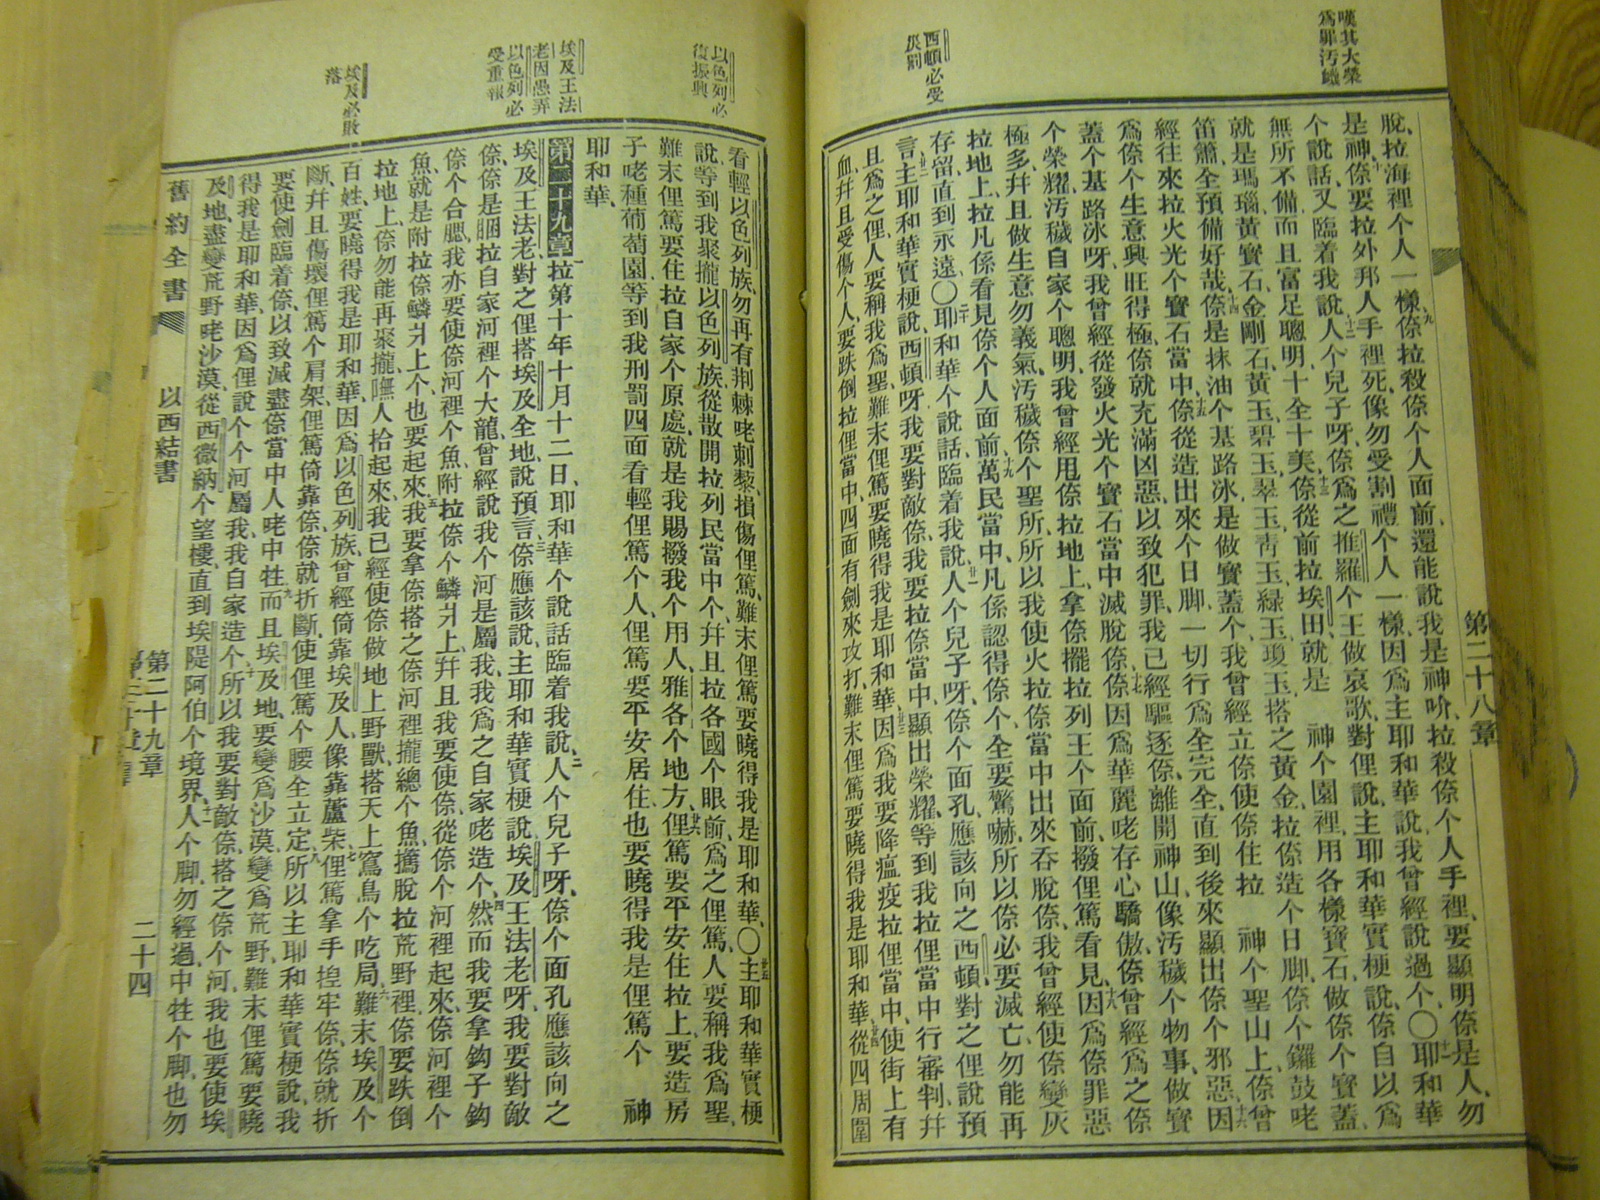 嘆其大榮
爲罪汚衊
西頓必受
災罰
第二十八章
脫拉海裡个人一樣九倷拉殺倷个人面前還能說我是神吤拉殺倷个人手裡要顯明倷是人勿
是神十倷要拉外邦人手裡死像勿受割禮个人一樣因爲主耶和華說我曾經說過个〇十一耶和華
个說話又臨着我說十二人个兒子呀倷爲之推羅个王做哀歌對俚說主耶和華實梗說倷自以爲
無所不備而且富足聰明十全十美十三倷從前拉埃田就是 神个園裡用各樣寶石做倷个寶蓋
就是瑪瑙黃寶石金剛石黃玉碧玉翠玉靑玉綠玉瓊玉搭之黃金拉倷造个日脚倷个鑼鼓咾
笛簫全預備好哉十四倷是抹油个基路冰是做寶蓋个我曾經立倷使倷住拉 神个聖山上倷曾
經往來拉火光个寶石當中十五倷從造出來个日脚一切行爲全完全直到後來顯出倷个邪惡十六因
爲倷个生意興旺得極倷就充滿凶惡以致犯罪我已經驅逐倷離開神山像汚穢个物事做寶
蓋个基路冰呀我曾經從發火光个寶石當中滅脫倷十七倷因爲華麗咾存心驕傲倷曾經爲之倷
个榮耀汚穢自家个聰明我曾經甩倷拉地上拿倷擺拉列王个面前撥俚篤看見十八因爲倷罪惡
極多幷且做生意勿義氣汚穢倷个聖所所以我使火拉倷當中出來吞脫倷我曾經使倷變灰
拉地上拉凡係看見倷个人面前十九萬民當中凡係認得倷个全要驚嚇所以倷必要滅亡勿能再
存留直到永遠〇二十耶和華个說話臨着我說廿一人个兒子呀倷个面孔應該向之西頓對之俚說預
言廿二主耶和華實梗說西頓呀我要對敵倷我要拉倷當中顯出榮耀等到我拉俚當中行審判幷
且爲之俚人要稱我爲聖難末俚篤要曉得我是耶和華廿三因爲我要降瘟疫拉俚當中使街上有
血幷且受傷个人要跌倒拉俚當中四面有劍來攻打難末俚篤要曉得我是耶和華廿四從四周圍
以色列必
復振興
埃及王法
老因愚弄
以色列必
受重報
埃及必敗
落
看輕以色列族勿再有荆棘咾刺藜損傷俚篤難末俚篤要曉得我是耶和華〇廿五主耶和華實梗
說等到我聚攏以色列族從散開拉列民當中个幷且拉各國个眼前爲之俚篤人要稱我爲聖
難末俚篤要住拉自家个原處就是我賜撥我个用人雅各个地方廿六俚篤要平安住拉上要造房
子咾種葡萄園等到我刑罰四面看輕俚篤个人俚篤要平安居住也要曉得我是俚篤个 神
耶和華
第二十九章一拉第十年十月十二日耶和華个說話臨着我說二人个兒子呀倷个面孔應該向之
埃及王法老對之俚搭埃及全地說預言三倷應該說主耶和華實梗說埃及王法老呀我要對敵
倷倷是䐃拉自家河裡个大龍曾經說我个河是屬我我爲之自家咾造个四然而我要拿鈎子鈎
倷个合腮我亦要使倷河裡个魚附拉倷个鱗爿上幷且我要使倷從倷个河裡起來倷河裡个
魚就是附拉倷鱗爿上个也要起來五我要拿倷搭之倷河裡攏總个魚擕脫拉荒野裡倷要跌倒
拉地上倷勿能再聚攏嘸人拾起來我已經使倷做地上野獸搭天上窵鳥个吃局六難末埃及个
百姓要曉得我是耶和華因爲以色列族曾經倚靠埃及人像靠蘆柴七俚篤拿手揑牢倷倷就折
斷幷且傷壞俚篤个肩架俚篤倚靠倷倷就折斷使俚篤个腰全立定八所以主耶和華實梗說我
要使劍臨着倷以致滅盡倷當中人咾中牲九而且埃及地要變爲沙漠變爲荒野難末俚篤要曉
得我是耶和華因爲俚說个个河屬我我自家造个十所以我要對敵倷搭之倷个河我也要使埃
及地盡變荒野咾沙漠從西微納个望樓直到埃隄阿伯个境界十一人个脚勿經過中牲个脚也勿
舊約全書 以西結書 第二十九章 二十四